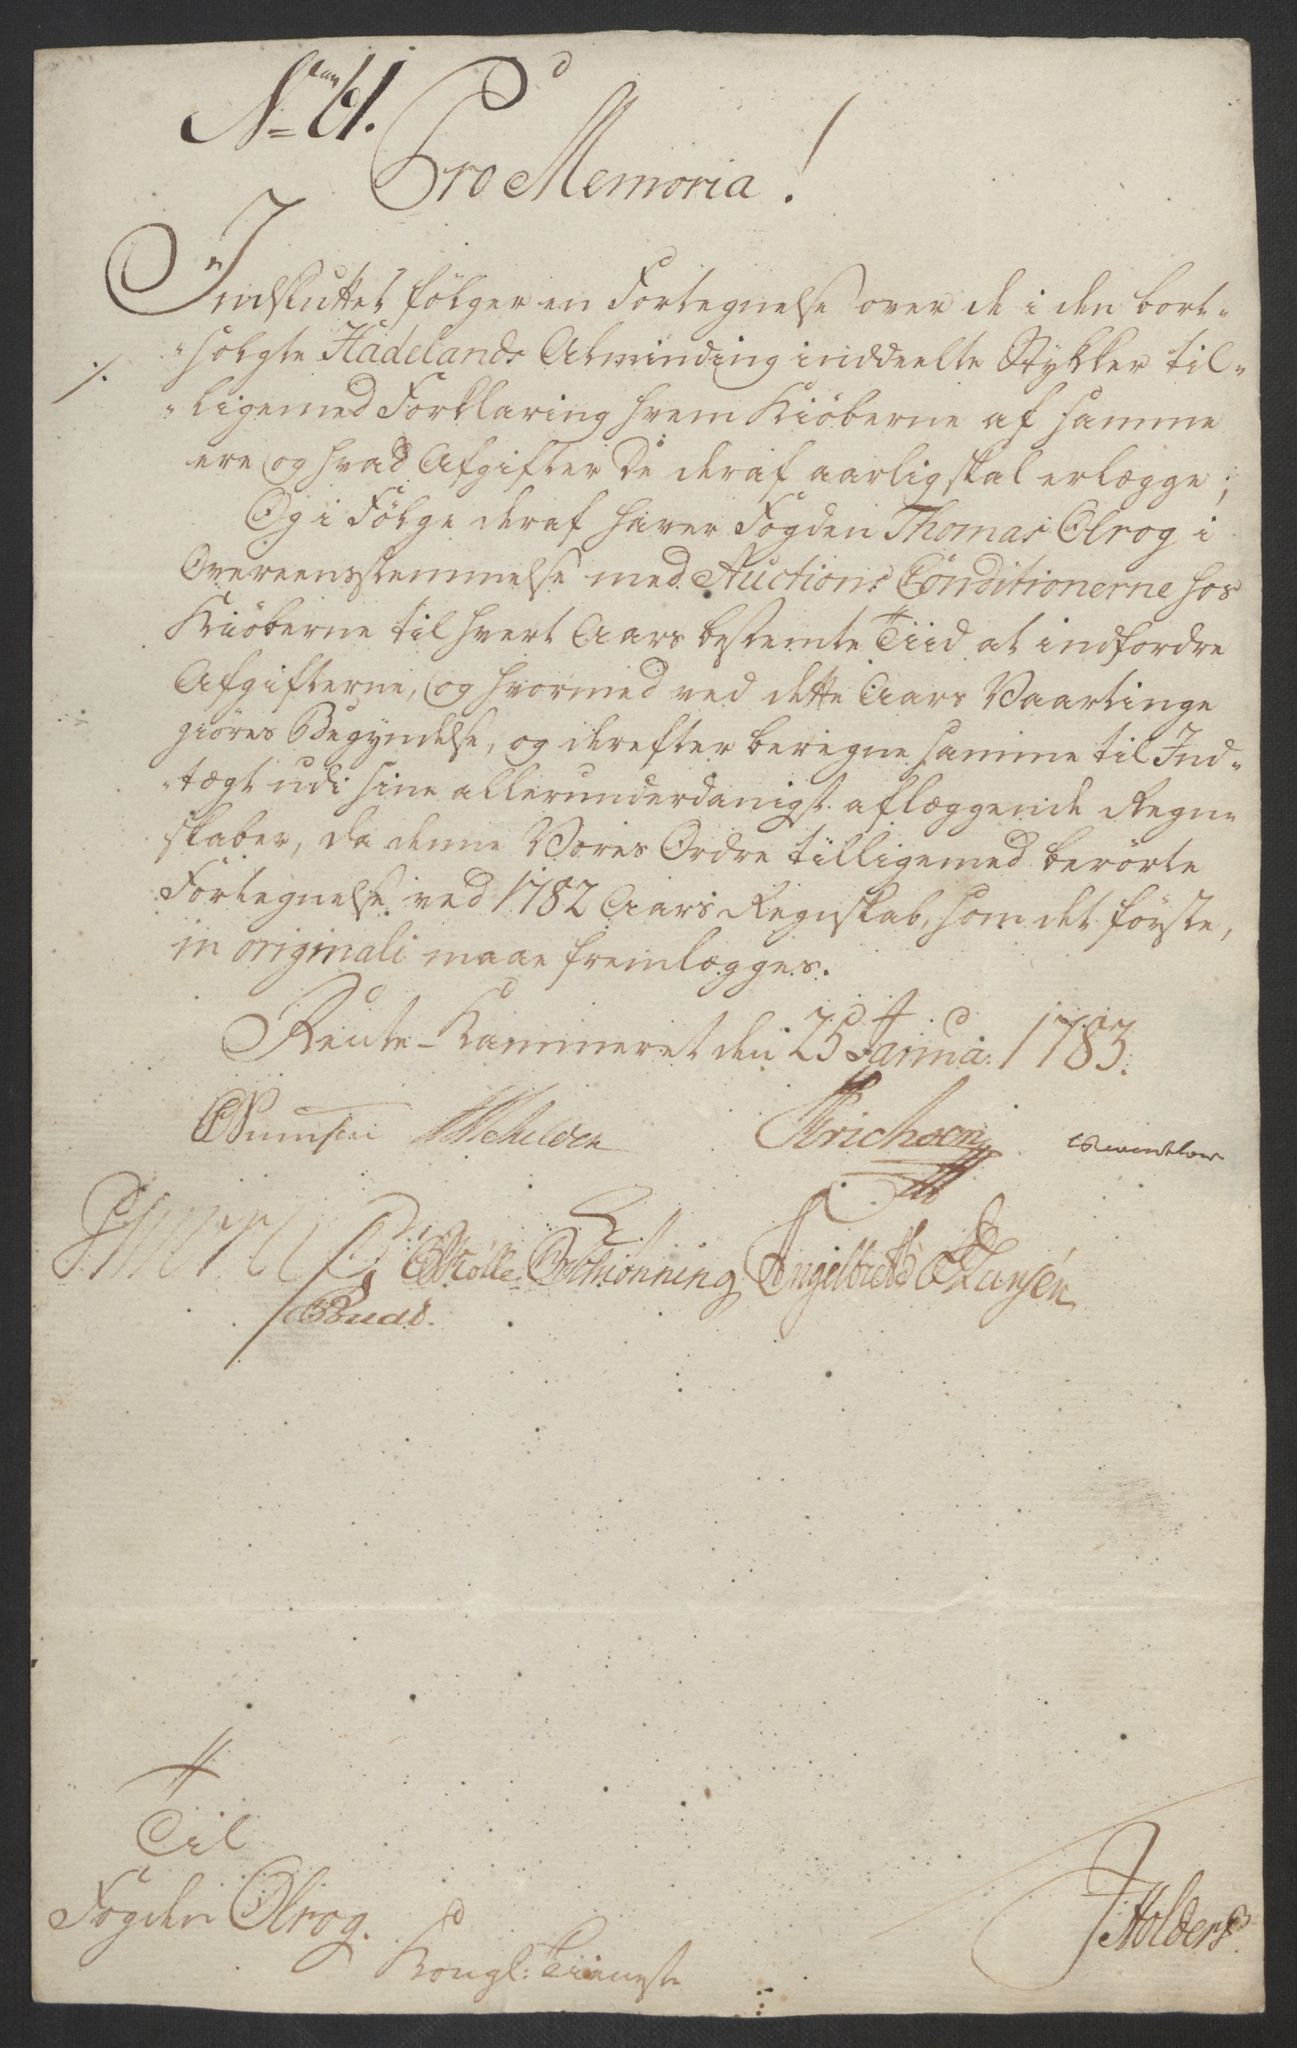 Pro Memoria!
Indsluttet følger en Fortegnelse over de i den bort-
solgte Hadelands Alminding inddeelte Stykker til-
ligemed Forklaring hvem Kiöberne af samme
ere og hvad Afgifter De deraf aarlig skal erlægge;
Og i Følge deraf haver Fogden Thomas Olrog i
Overeensstemmelse med Auctions Conditionerne hos
Kiöberne til hvert Aars bestemte Tiid at indfordre
Afgifterne, og hvormed ved dette Aars Vaartinge
giöres Begyndelse, og derefter beregne samme til Ind-
tægt udi sine allerunderdanigst aflæggende Regn-
skaber, da denne Vores Ordre tilligemed berørte
Fortegnelse ved 1782 Aars Regnskab, som det første,
in originali maae fremlægges.
Rente-Kammeret den 25 Janua: 1783.
Schilden Erichsen
Mölle Selmönning Engelbrecht Hansén
Til
Fogden Olrog.
Kongl: Tieneste
Holders